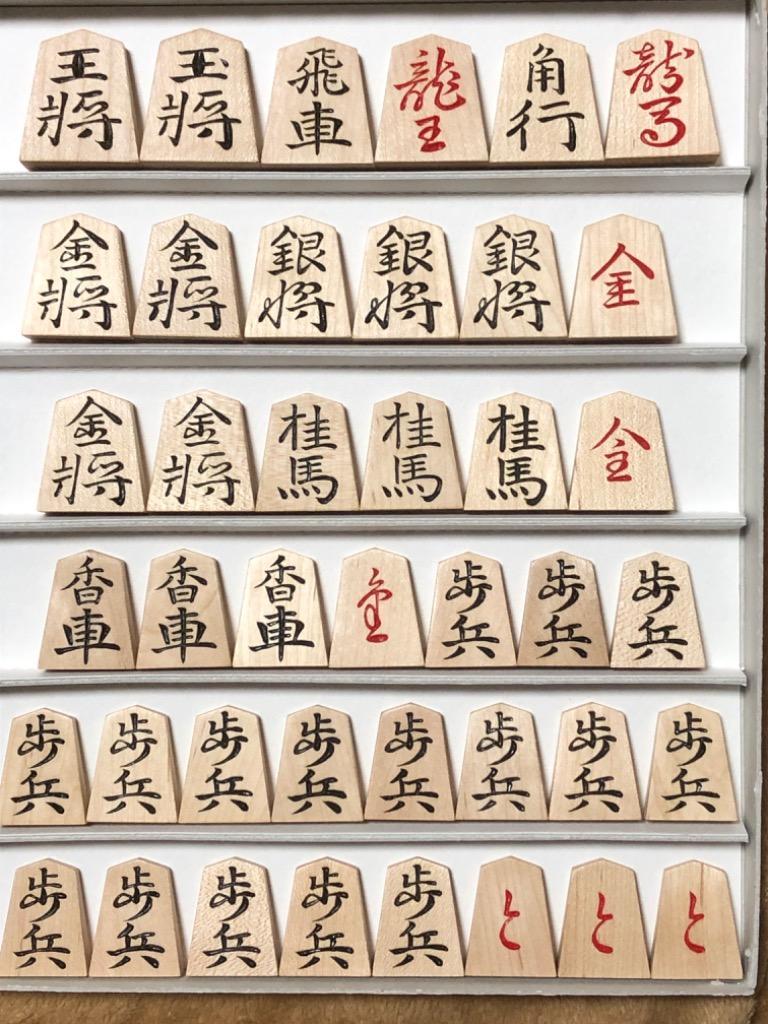 王將 玉將 飛車 龍王 角行 龍馬
金將 金將 銀将 銀将 銀将 全
金將 金將 桂馬 桂馬 桂馬 全
香車 香車 香車 金 歩兵 歩兵 歩兵
歩兵 歩兵 歩兵 歩兵 歩兵 歩兵 歩兵 歩兵
歩兵 歩兵 歩兵 歩兵 歩兵 と と と